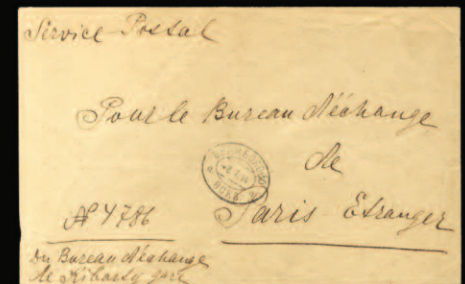 Service Postal
Pour le Bureau d'échange
de
Paris Etranger
№ 4786
Du Bureau d'échange
de Kibarty gare